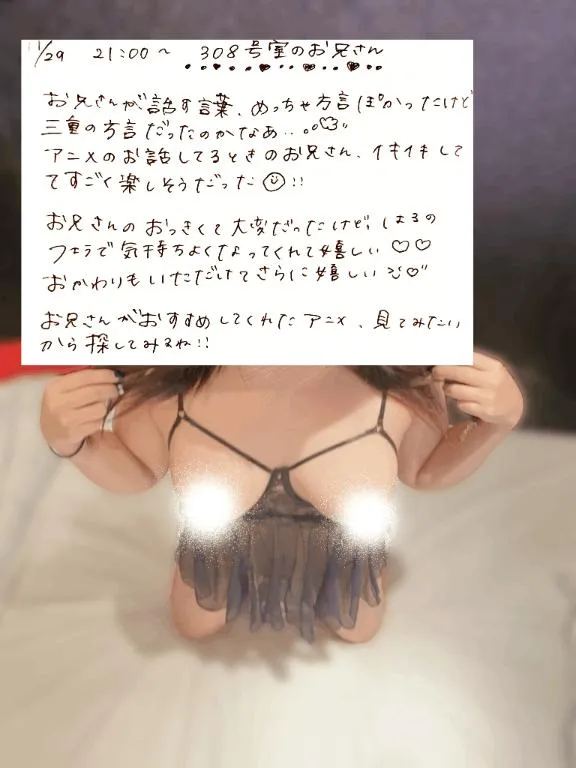 11/29 21:00〜 308号室のお兄さん
お兄さんが話す言葉、めっちゃ方言ぽかったけど
三重の方言だったのかなあ...
アニメのお話してるときのお兄さん、イキイキして
てすごく楽しそうだった!!
お兄さんのおっきくて大変だったけど、はるの
フェラで気持ちよくなってくれて嬉しい♡♡
おかわりもいただけてさらに嬉しい♡"
お兄さんがおすすめしてくれたアニメ、見てみたい
から探してみるね!!